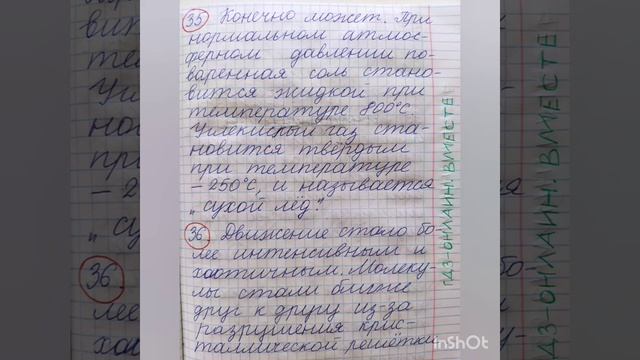 35 Конечно может. При
нормальном атмос-
ферном давлении по-
варенная соль стано-
вится жидкой при
температуре 800°С.
Углекислый газ ста-
новится твёрдым
при температуре
-250°С, и называется
„сухой лёд."
36 Движение стало бо-
лее интенсивным и
хаотичным. Молеку-
лы стали ближе
друг к другу из-за
разрушения крис-
таллической решётки
ГДЗ-ОНЛАЙН! ВМЕСТЕ!
InShOt